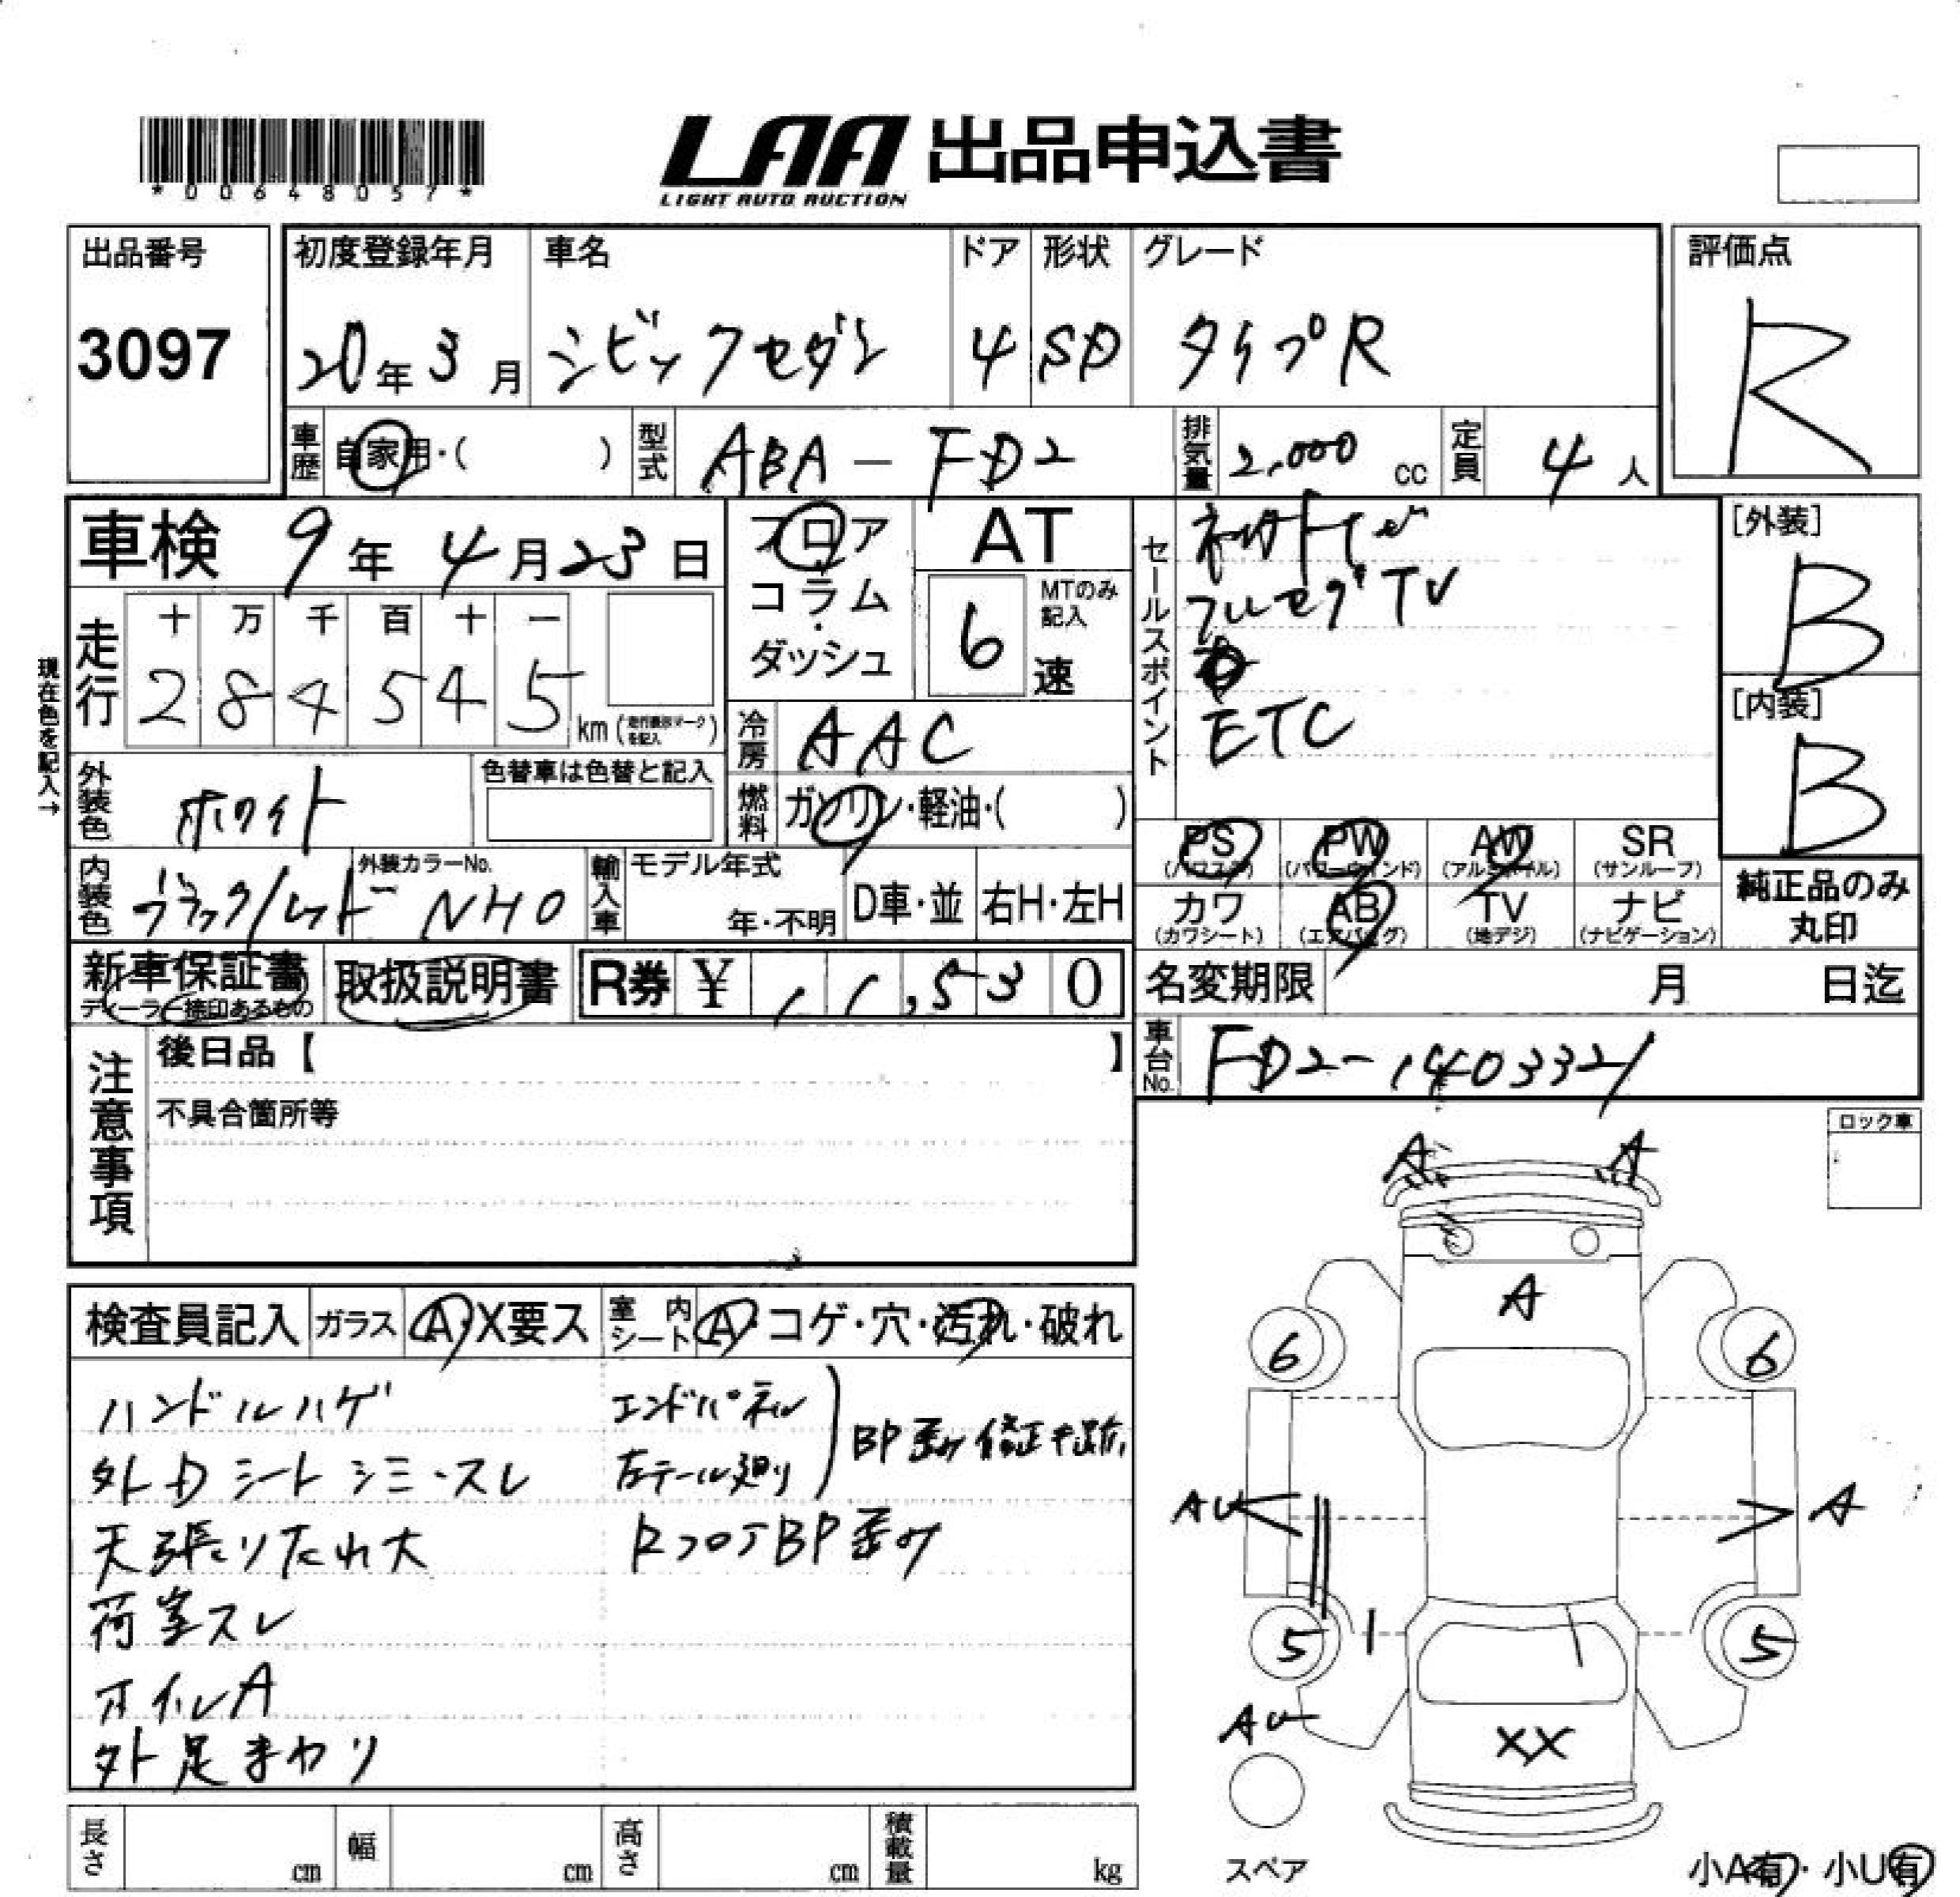 *00648057*
LAA 出品申込書
LIGHT AUTO AUCTION
出品番号
3097
初度登録年月
20年3月
車名
シビックセダン
ドア
4
形状
SD
グレード
タイプR
評価点
R
車歴 自家用・( )
型式 ABA-FD2
排気量 2,000 cc
定員 4 人
車検 9年4月23日
フロア
コラム
・
ダッシュ
AT
6
MTのみ記入
速
セールスポイント
フルセグTV
ETC
[外装]
B
[内装]
B
現在色を記入→
走行
十 万 千 百 十 一
2 8 4 5 4 5 km (走行表示マークを記入)
冷房 AAC
燃料 ガソリン・軽油・( )
外装色 ホワイト
色替車は色替と記入
内装色 ブラック/レッド
外装カラーNo.
NH0
輸入車
モデル年式
年・不明
D車・並
右H・左H
PS (パワステ)
PW (パワーウインド)
AW (アルミホイル)
SR (サンルーフ)
カワ (カワシート)
AB (エアバッグ)
TV (地デジ)
ナビ (ナビゲーション)
純正品のみ
丸印
新車保証書
ディーラー捺印あるもの
取扱説明書
R券 ¥ 11,530
名変期限 月 日迄
車台No. FD2-1403321
注意事項
後日品【 】
不具合箇所等
ロック車
検査員記入
ガラス A・X要ス
室内シート A・コゲ・穴・汚れ・破れ
ハンドルハゲ
外Dシートシミ・スレ
天張りたれ大
荷室スレ
ホイルA
外足まわり
エンドパネル
左テール廻り
BP歪み修正キ跡
RフロアBP歪み
A A
A
6 6
AU A
5 5
AU
XX
スペア
小A有・小U有
長さ cm
幅 cm
高さ cm
積載量 kg